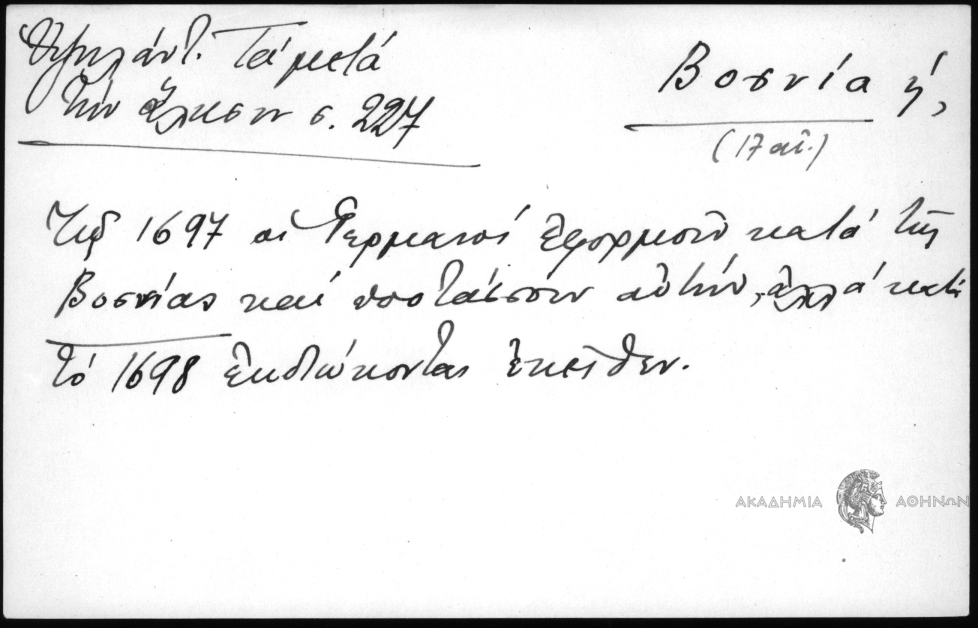 Ὑψηλάντ. Τά μετά
τήν ἅλωσιν σ. 227
Βοσνία ἡ,
(17 αἰ.)
Τῷ 1697 οἱ Γερμανοί ἐφορμοῦν κατά τῆς
Βοσνίας καί ὑποτάσσουν αὐτήν, ἀλλά κατά
τό 1698 ἐκδιώκονται ἐκεῖθεν.
ΑΚΑΔΗΜΙΑ ΑΘΗΝΩΝ